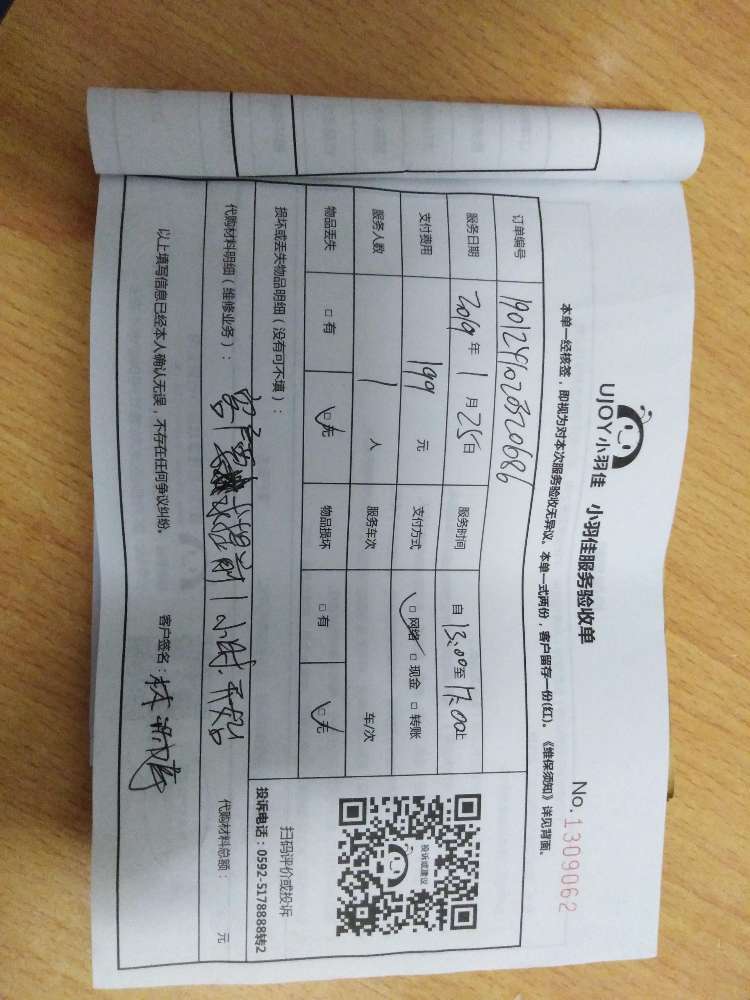 UJOY小羽佳 小羽佳服务验收单
No.1309062
本单一经核签，即视为对本次服务验收无异议。本单一式两份，客户留存一份(红)。《维保须知》详见背面。
订单编号 190124102320686
服务日期 2019年1月25日 服务时间 自13:00至17:00止
支付费用 199元 支付方式 □网络 □现金 □转账
服务人数 1人 服务车次 车/次
物品丢失 □有 □无 物品损坏 □有 □无
投诉或建议
扫码评价或投诉
投诉电话：0592-5178888转2
损坏或丢失物品明细（没有可不填）：
代购材料明细（维修业务）： 代购材料总额： 元
客户要求 提前1小时开始
以上填写信息已经本人确认无误，不存在任何争议纠纷。 客户签名：林